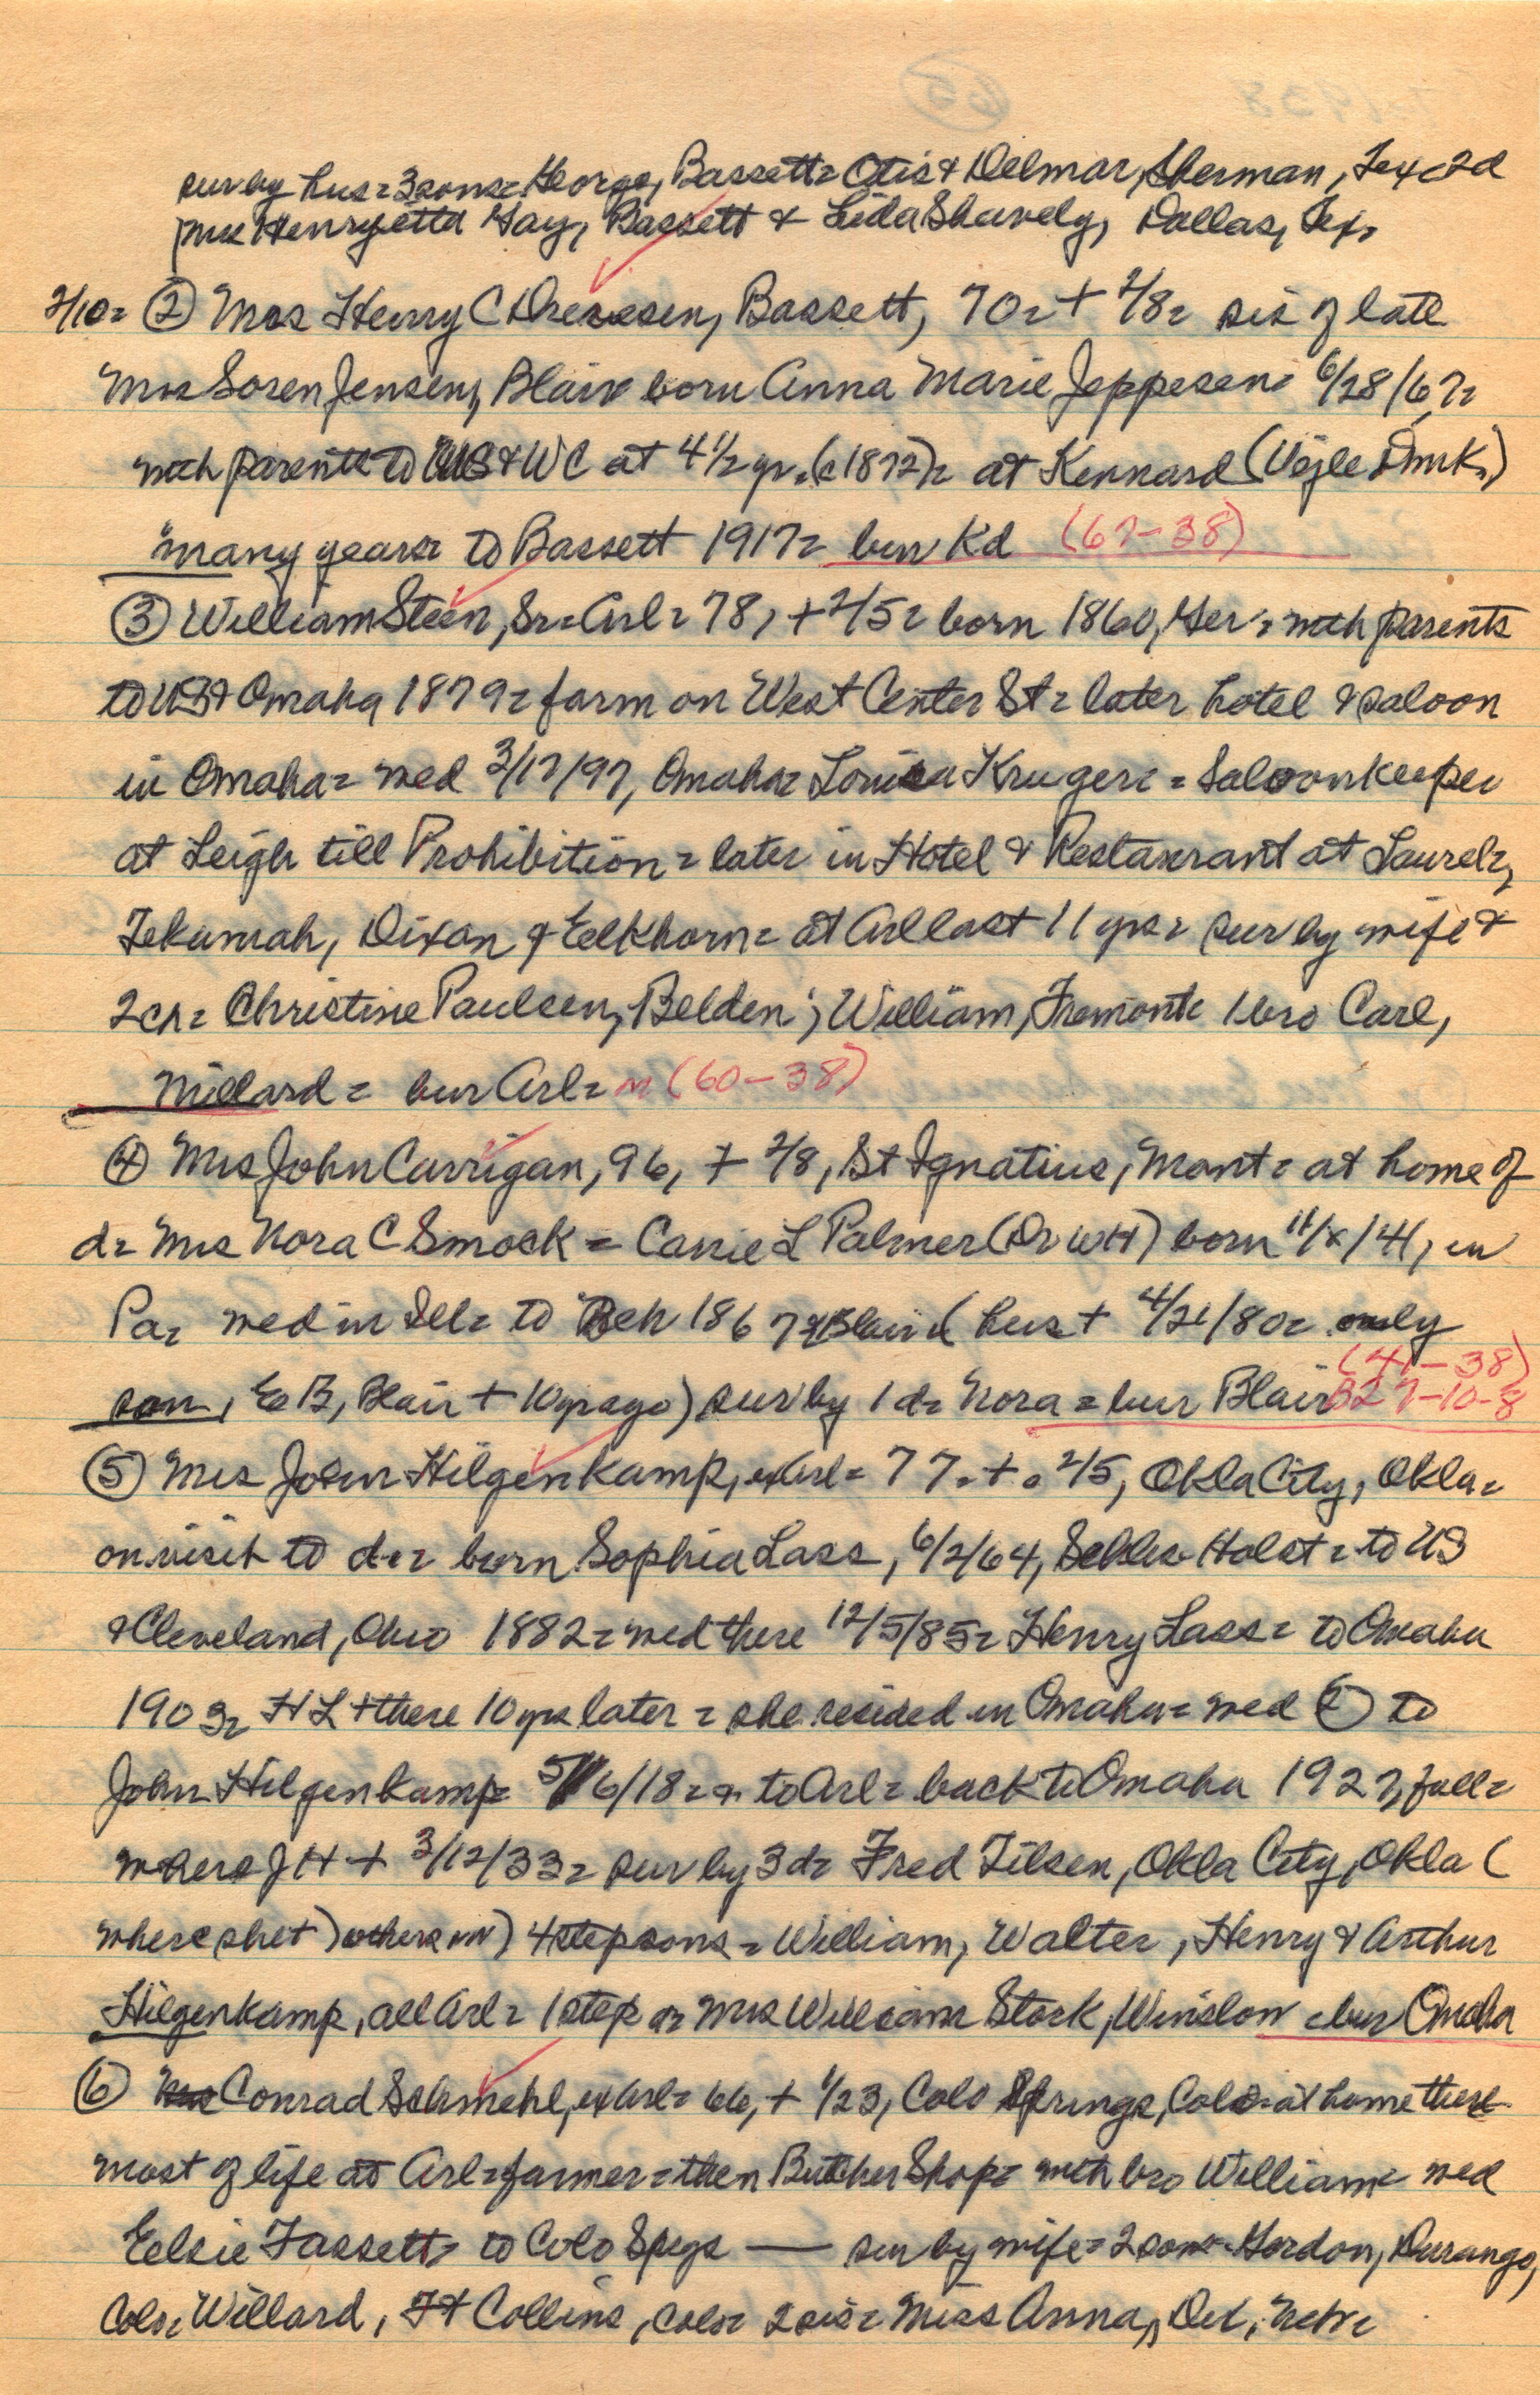 sur by hus = 3 sons = George, Bassett = Otis & Delmar, Sherman, Tex = 2d
Mrs Henryetta Gay, Bassett & Lida Shavely, Dallas, Tex.
2/10 = ② Mrs Henry C Dressen, Bassett, 70 = + 2/8 = sis of late
Mrs Soren Jensen, Blair born Anna Marie Jeppesen = 6/28/67 =
with parents to US & WC at 4 1/2 yr. (c 1872) = at Kennard (Vejle Dmk.)
many years = to Bassett 1917 = bur Kd (67-38)
③ William Steen, Sr = Arl = 78, + 2/5 = born 1860, Ger = with parents
to US & Omaha 1879 = farm on West Center St = later hotel & saloon
in Omaha = wed 3/17/97, Omaha = Louisa Kruger = = Saloonkeeper
at Leigh till Prohibition = later in Hotel & Restaurant at Laurel =,
Tekamah, Dixon & Elkhorn = at Arl last 11 yrs = sur by wife &
2 ch = Christine Paulsen, Belden; William, Fremont = 1 bro Carl,
Millard = bur Arl = m (60-38)
④ Mrs John Carrigan, 96, + 2/8, St Ignatius, Mont = at home of
d = Mrs Nora C Smock = Carrie L Palmer (Dr WH) born 11/x/41, in
Pa = wed in Ill = to Neb 1867 & Blair (hus + 4/21/80 = only
(41-38)
son, E B, Blair + 10 yr ago) sur by 1 d = Nora = bur Blair B27-10-8
⑤ Mrs John Hilgenkamp, exArl = 77. + . 2/5, Okla City, Okla =
on visit to d = born Sophia Lass, 6/2/64, Schles-Holst = to US
& Cleveland, Ohio 1882 = wed there 12/5/85 = Henry Lass = to Omaha
1903 = HL + there 10 yrs later = she resided in Omaha = wed ② to
John Hilgenkamp = 5/16/18 = & to Arl = back to Omaha 1927, fall =
where JH + 3/12/33 = sur by 3 d = Fred Tilsen, Okla City, Okla (
where she +) others nn) 4 stepsons = William, Walter, Henry & Arthur
Hilgenkamp, all Arl = 1 step d = Mrs William Stork, Winslow = bur Omaha
⑥ Conrad Schmehl, exArl = 66, + 1/23, Colo Springs, Colo = at home there
most of life at Arl = farmer = then Butcher Shop = with bro William = wed
Elsie Fassett = to Colo Spgs — sur by wife = 2 sons = Gordon, Durango,
Colo, Willard, Ft Collins, Colo = 2 sis = Miss Anna, Oct, Neb =